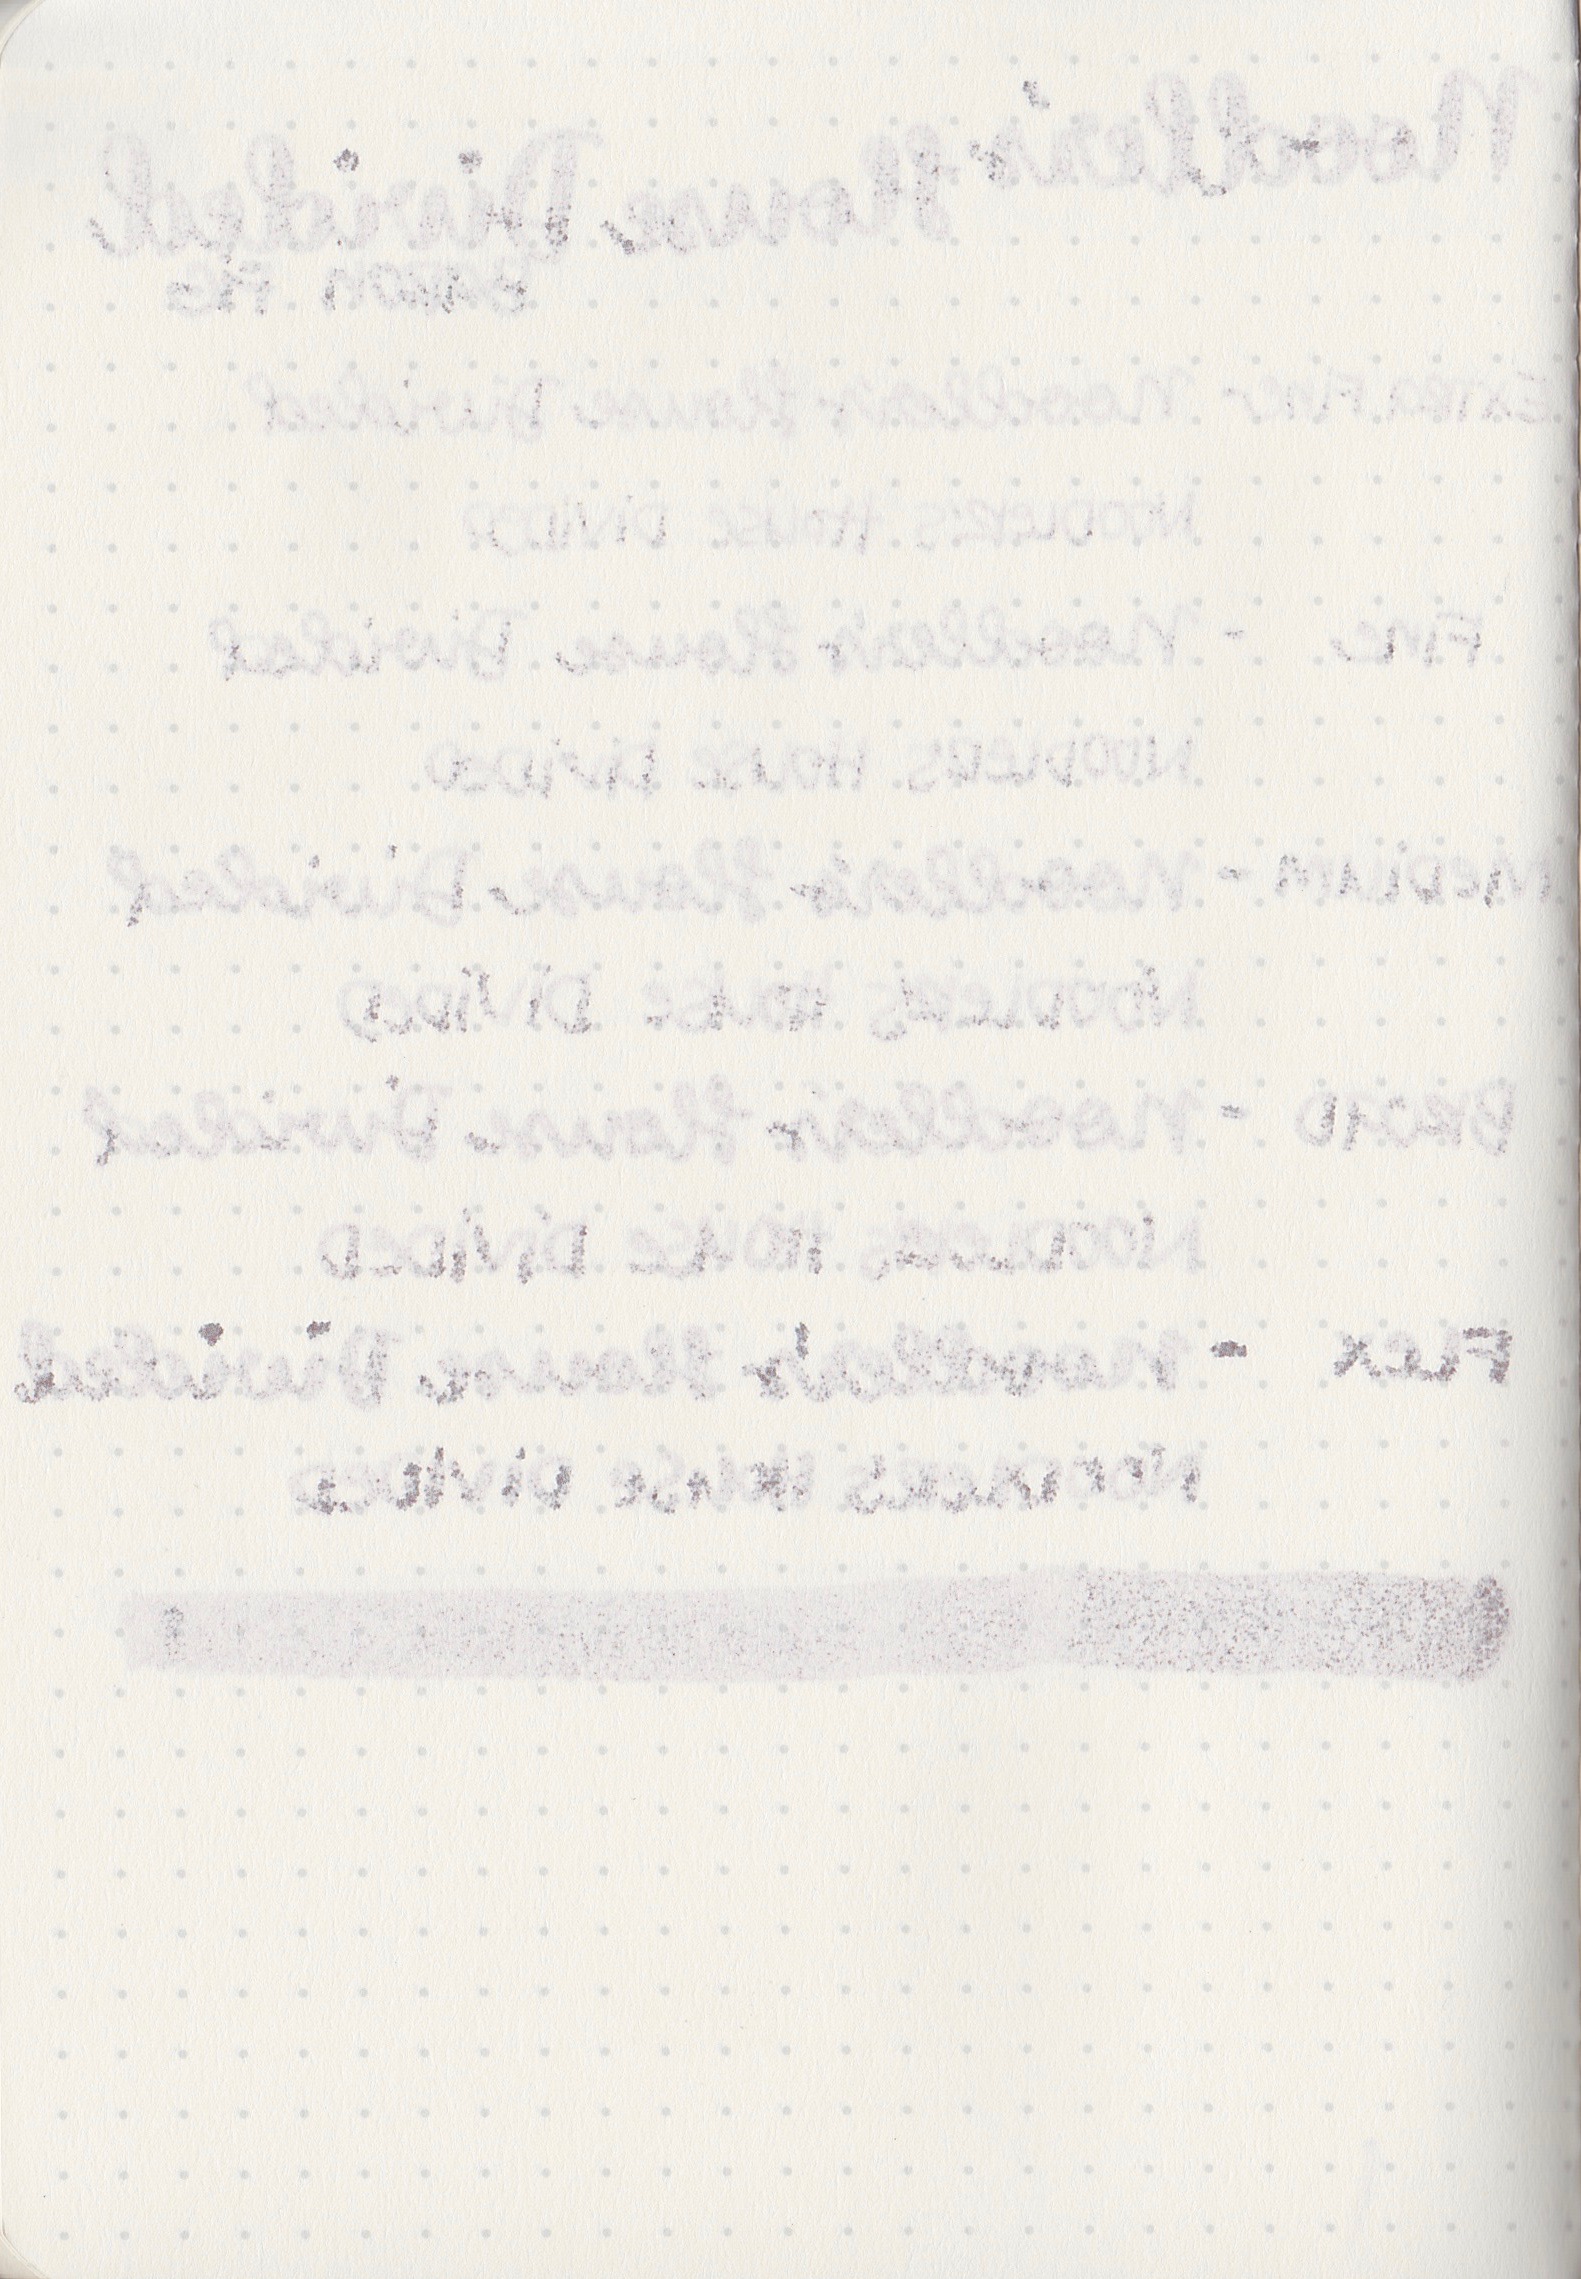 Noodler's House Divided
BARON FIG
EXTRA FINE - Noodler's House Divided
NOODLER'S HOUSE DIVIDED
FINE - Noodler's House Divided
NOODLER'S HOUSE DIVIDED
MEDIUM - Noodler's House Divided
NOODLER'S HOUSE DIVIDED
BROAD - Noodler's House Divided
NOODLER'S HOUSE DIVIDED
FLEX - Noodler's House Divided
NOODLER'S HOUSE DIVIDED